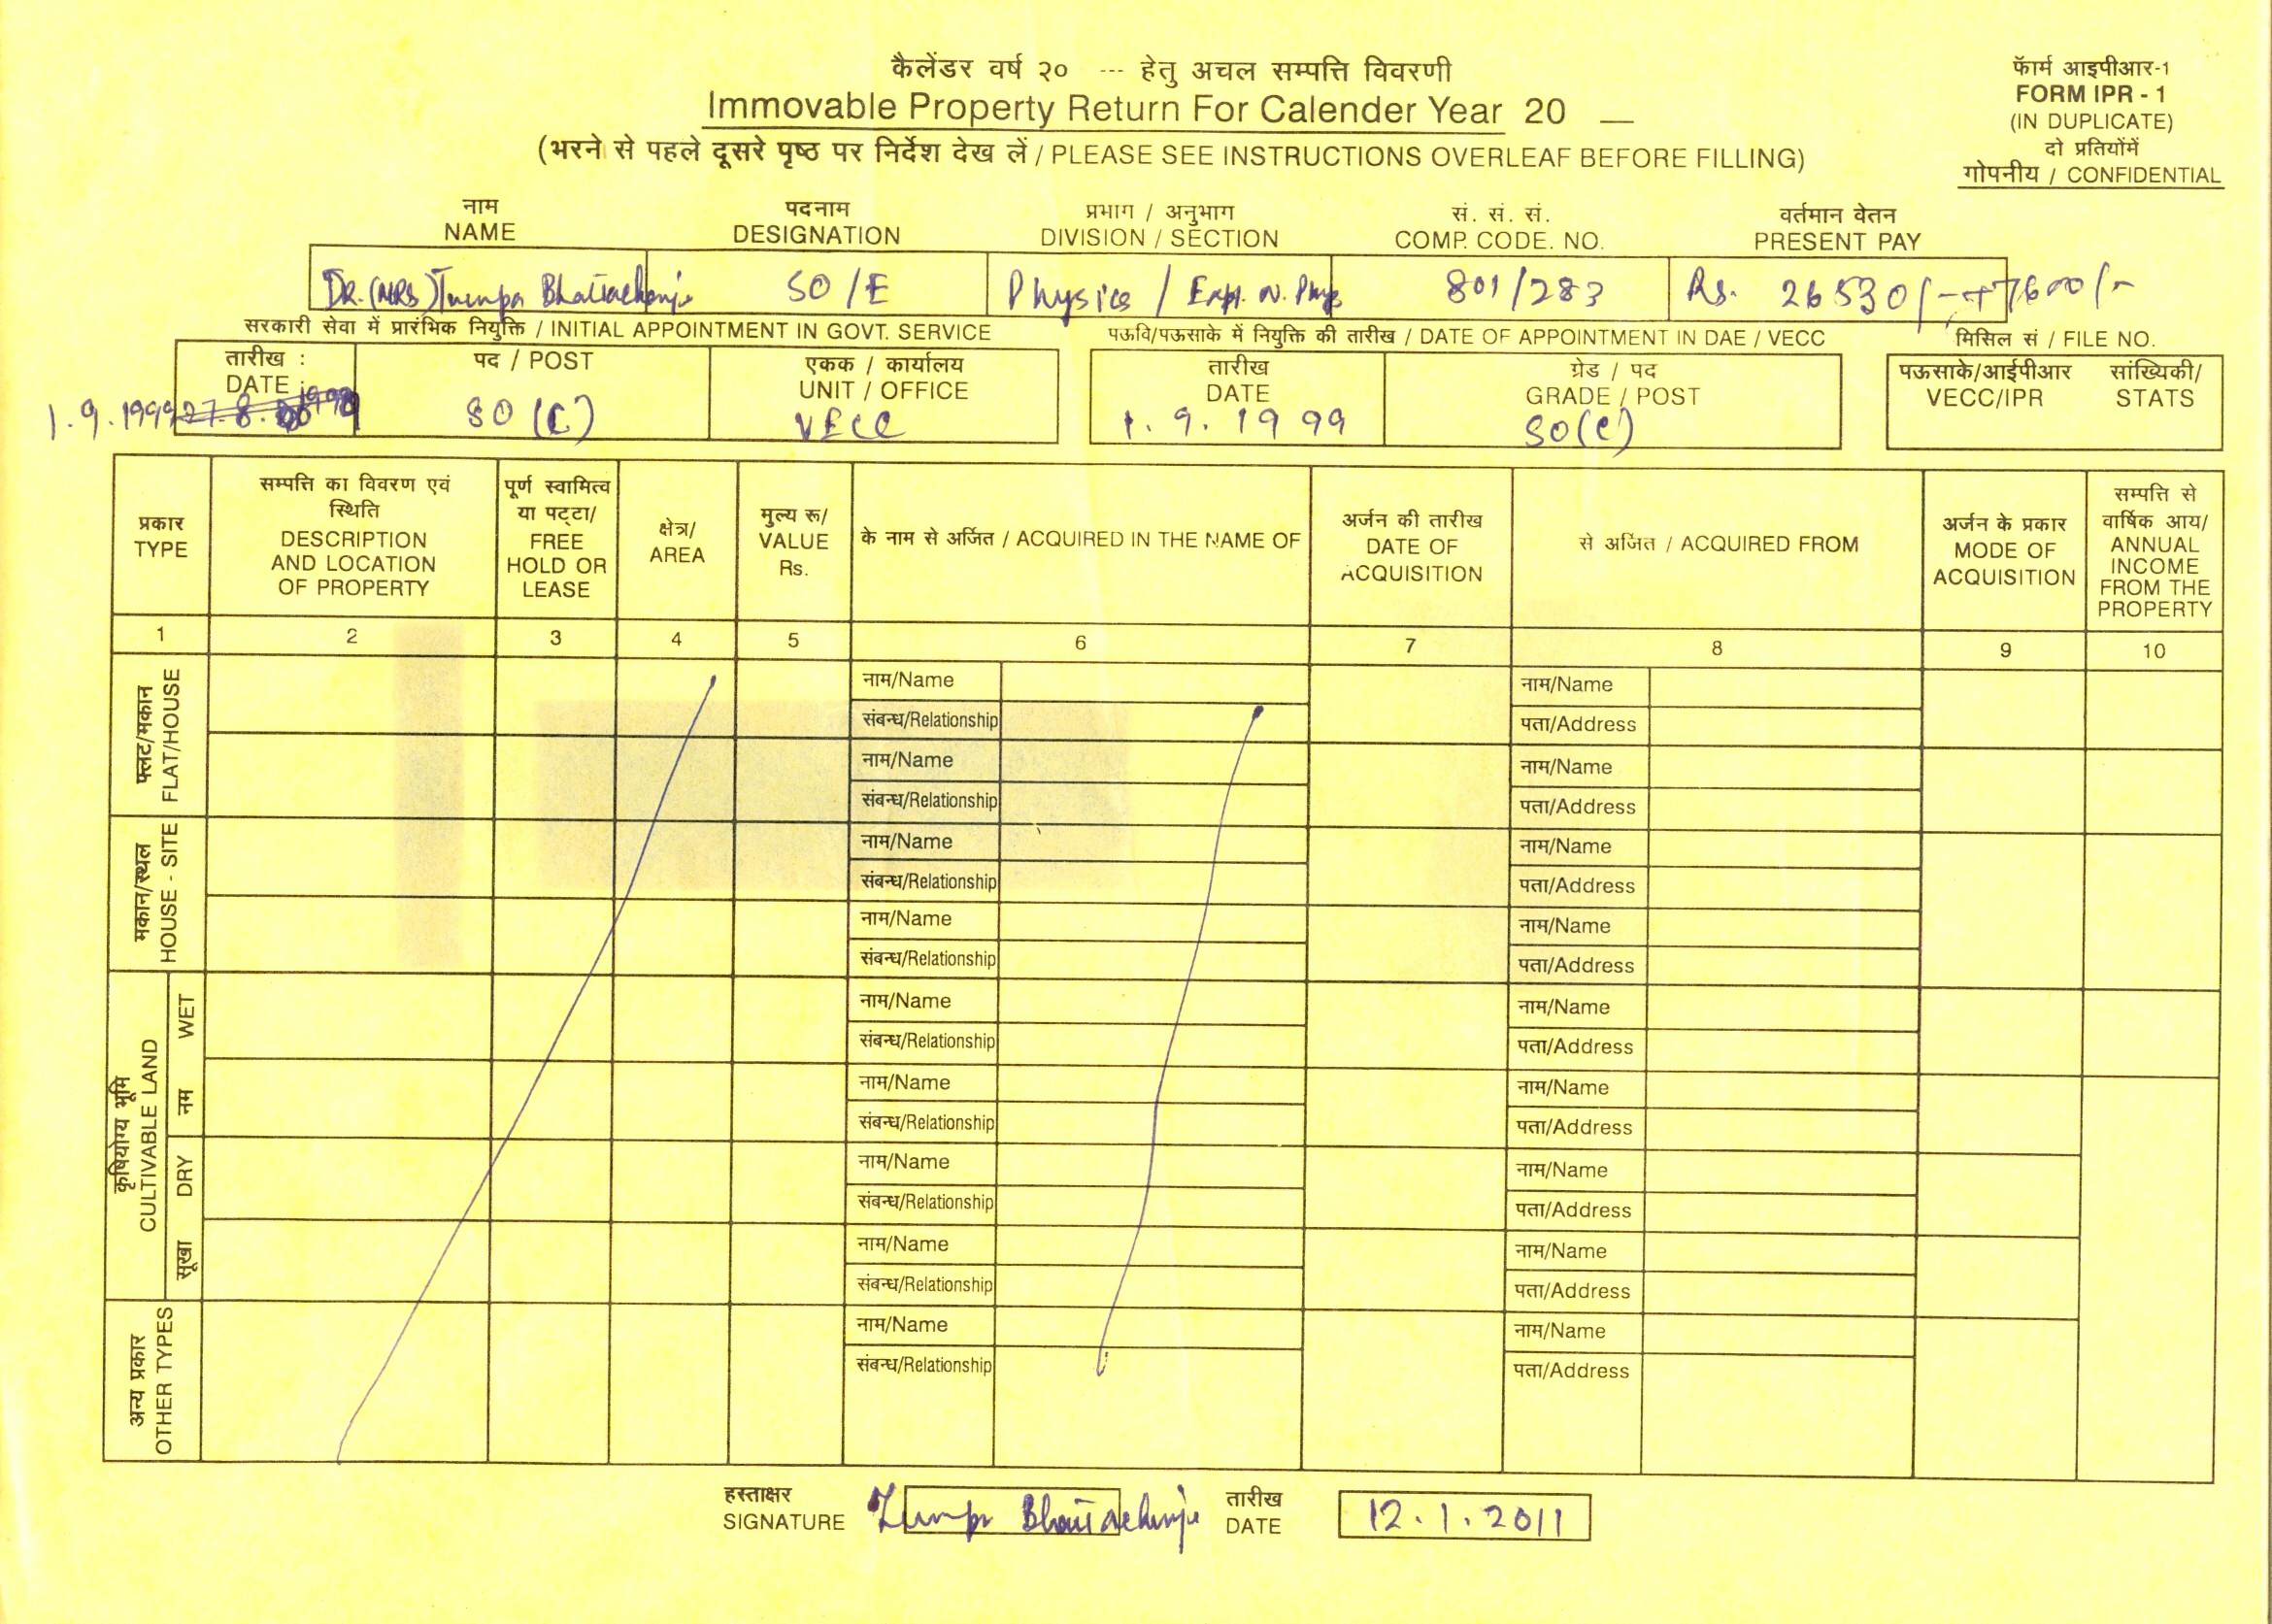 कैलेंडर वर्ष २० --- हेतु अचल सम्पत्ति विवरणी
Immovable Property Return For Calender Year 20 __
(भरने से पहले दूसरे पृष्ठ पर निर्देश देख लें / PLEASE SEE INSTRUCTIONS OVERLEAF BEFORE FILLING)
फॅार्म आइपीआर-1
FORM IPR - 1
(IN DUPLICATE)
दो प्रतियोंमें
गोपनीय / CONFIDENTIAL
नाम पदनाम प्रभाग / अनुभाग सं. सं. सं. वर्तमान वेतन
NAME DESIGNATION DIVISION / SECTION COMP. CODE. NO. PRESENT PAY
DR. (MRS) Tumpa Bhattacharjee SO/E Physics / Expt. N. Phys 801/283 Rs. 26530/- + 7600/-
सरकारी सेवा में प्रारंभिक नियुक्ति / INITIAL APPOINTMENT IN GOVT. SERVICE पऊवि/पऊसाके में नियुक्ति की तारीख / DATE OF APPOINTMENT IN DAE / VECC मिसिल सं / FILE NO.
तारीख : पद / POST एकक / कार्यालय तारीख ग्रेड / पद पऊसाके/आईपीआर सांख्यिकी/
DATE : UNIT / OFFICE DATE GRADE / POST VECC/IPR STATS
1.9.1999 SO (C) VECC 1.9.1999 SO(C)
प्रकार
TYPE
सम्पत्ति का विवरण एवं
स्थिति
DESCRIPTION
AND LOCATION
OF PROPERTY
पूर्ण स्वामित्व
या पट्टा/
FREE
HOLD OR
LEASE
क्षेत्र/
AREA
मुल्य रू/
VALUE
Rs.
के नाम से अर्जित / ACQUIRED IN THE NAME OF
अर्जन की तारीख
DATE OF
ACQUISITION
से अर्जित / ACQUIRED FROM
अर्जन के प्रकार
MODE OF
ACQUISITION
सम्पत्ति से
वार्षिक आय/
ANNUAL
INCOME
FROM THE
PROPERTY
1 2 3 4 5 6 7 8 9 10
फ्लट/मकान
FLAT/HOUSE
नाम/Name नाम/Name
संबन्ध/Relationship पता/Address
नाम/Name नाम/Name
संबन्ध/Relationship पता/Address
मकान/स्थल
HOUSE - SITE
नाम/Name नाम/Name
संबन्ध/Relationship पता/Address
नाम/Name नाम/Name
संबन्ध/Relationship पता/Address
कृषियोग्य भूमि
CULTIVABLE LAND
नम WET
नाम/Name नाम/Name
संबन्ध/Relationship पता/Address
नाम/Name नाम/Name
संबन्ध/Relationship पता/Address
सूखा DRY
नाम/Name नाम/Name
संबन्ध/Relationship पता/Address
नाम/Name नाम/Name
संबन्ध/Relationship पता/Address
अन्य प्रकार
OTHER TYPES
नाम/Name नाम/Name
संबन्ध/Relationship पता/Address
हस्ताक्षर तारीख
SIGNATURE Tumpa Bhattacharjee DATE 12.1.2011